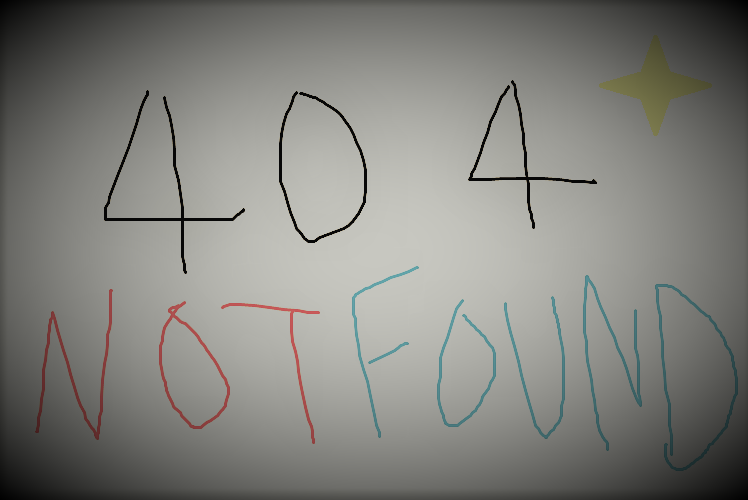 404
NOT FOUND